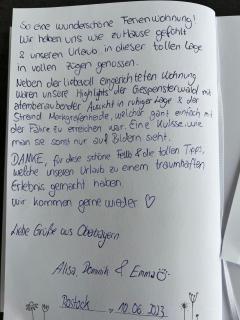 So eine wunderschöne Ferienwohnung!
Wir haben uns wie zu Hause gefühlt
& unseren Urlaub in dieser tollen Lage
in vollen Zügen genossen.
Neben der liebevoll eingerichteten Wohnung
waren unsere Highlights der Gespensterwald mit
atemberaubender Aussicht in ruhiger Lage & der
Strand Markgrafenheide, welcher ganz einfach mit
der Fähre zu erreichen war. Eine Kulisse, wie
man sie sonst nur auf Bildern sieht.
DANKE, für diese schöne FeWo & die tollen Tipps,
welche unseren Urlaub zu einem traumhaften
Erlebnis gemacht haben.
Wir kommen gerne wieder ♡
Liebe Grüße aus Oberbayern
Alisa, Dominik & Emma
Rostock, 10.06.2023